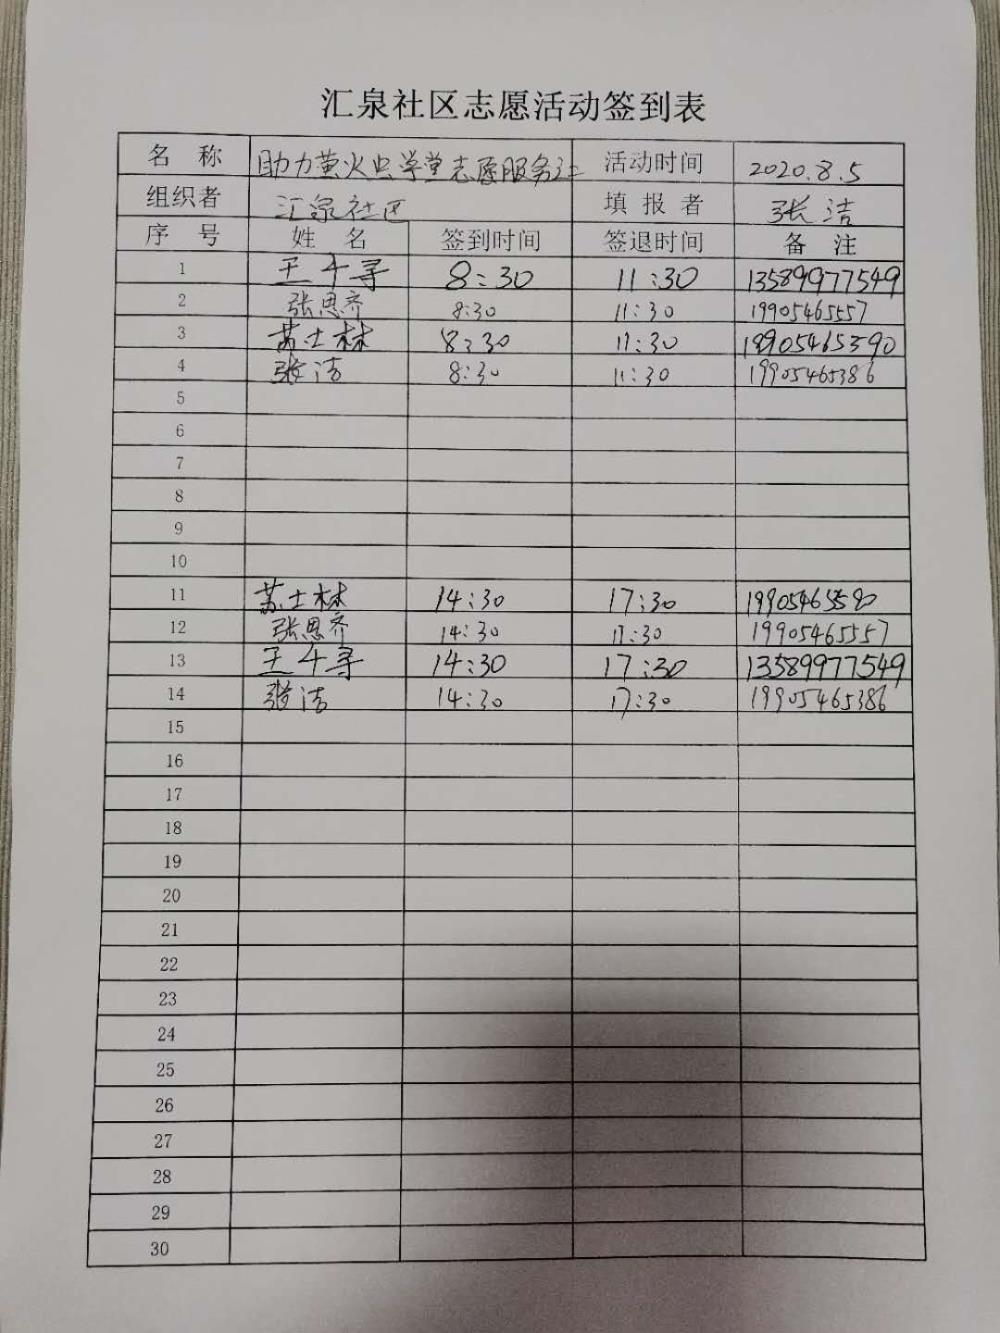 汇泉社区志愿活动签到表
名 称 助力萤火虫学堂志愿服务 活动时间 2020.8.5
组织者 汇泉社区 填报者 张洁
序 号 姓 名 签到时间 签退时间 备 注
1 王千寻 8:30 11:30 13589977549
2 张思齐 8:30 11:30 19905465557
3 苏士林 8:30 11:30
4 张洁 8:30 11:30 19905465386
5
6
7
8
9
10
11 苏士林 14:30 17:30
12 张思齐 14:30 17:30 19905465557
13 王千寻 14:30 17:30 13589977549
14 张洁 14:30 17:30 19905465386
15
16
17
18
19
20
21
22
23
24
25
26
27
28
29
30